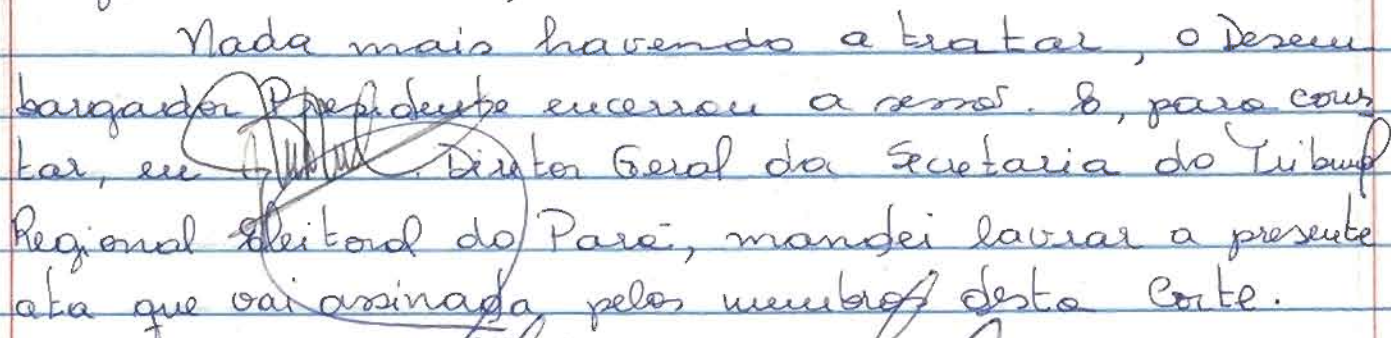 Nada mais havendo a tratar, o Desem
bargador Presidente encerrou a sessão. E, para cons
tar, eu Diretor Geral da Secretaria do Tribunal
Regional Eleitoral do Pará, mandei lavrar a presente
ata que vai assinada pelos membros desta Corte.